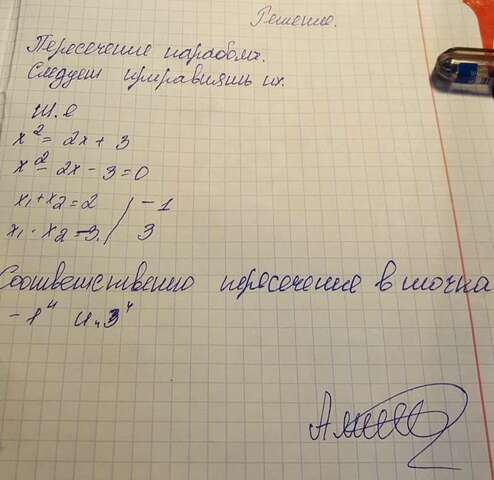 Решение.
Пересечение парабол.
Следует приравнять их.
т.е
x² = 2x + 3
x² - 2x - 3 = 0
x₁ + x₂ = 2 / -1
x₁ · x₂ = -3. / 3
Соответственно пересечение в точка
-1" и "3"